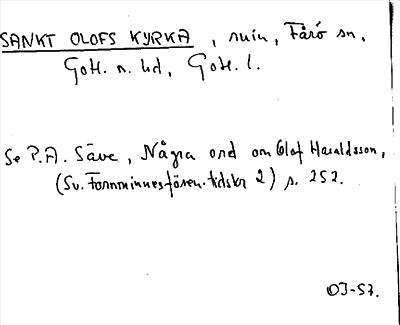 SANKT OLOFS KYRKA, ruin, Fårö sn,
Gotl. n. hd, Gotl. l.
Se P.A. Säve, Några ord om Olof Haraldsson,
(Sv. Fornminnesfören. tidskr 2) s. 252.
OJ-53.